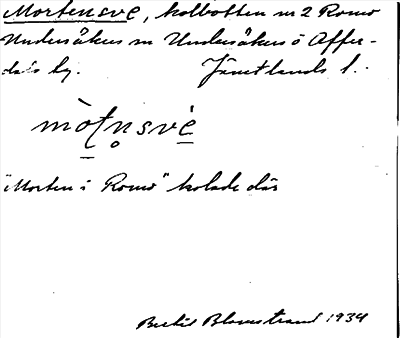 Mortensve, kolbotten nr 2 Romo
Undersåkers sn Undersåkers o Offer-
dals tg. Jämtlands l.
mò̱ṭn̥svè̱
"Morten i Romo" kolade där
Bertil Blomstrand 1934